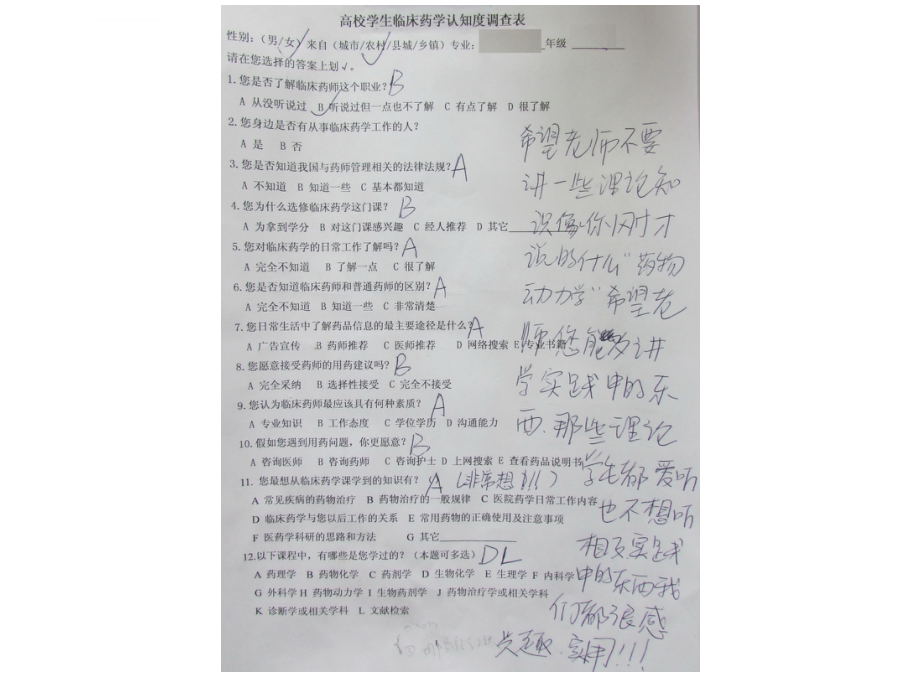 高校学生临床药学认知度调查表
性别：（男/女）来自（城市/农村/县城/乡镇）专业： 年级
请在您选择的答案上划√。
1.您是否了解临床药师这个职业？ B
A 从没听说过 B 听说过但一点也不了解 C 有点了解 D 很了解
2.您身边是否有从事临床药学工作的人？
A 是 B 否
3.您是否知道我国与药师管理相关的法律法规？ A
A 不知道 B 知道一些 C 基本都知道
4.您为什么选修临床药学这门课？ B
A 为拿到学分 B 对这门课感兴趣 C 经人推荐 D 其它
5.您对临床药学的日常工作了解吗？ A
A 完全不知道 B 了解一点 C 很了解
6.您是否知道临床药师和普通药师的区别？ A
A 完全不知道 B 知道一些 C 非常清楚
7.您日常生活中了解药品信息的最主要途径是什么？ A
A 广告宣传 B 药师推荐 C 医师推荐 D 网络搜索 E 专业书籍
8.您愿意接受药师的用药建议吗？ B
A 完全采纳 B 选择性接受 C 完全不接受
9.您认为临床药师最应该具有何种素质？ A
A 专业知识 B 工作态度 C 学位学历 D 沟通能力
10.假如您遇到用药问题，你更愿意？ B
A 咨询医师 B 咨询药师 C 咨询护士 D 上网搜索 E 查看药品说明书
11. 您最想从临床药学课学到的知识有？ A（非常想!!!）
A 常见疾病的药物治疗 B 药物治疗的一般规律 C 医院药学日常工作内容
D 临床药学与您以后工作的关系 E 常用药物的正确使用及注意事项
F 医药学科研的思路和方法 G 其它
12.以下课程中，有哪些是您学过的？（本题可多选） DL
A 药理学 B 药物化学 C 药剂学 D 生物化学 E 生理学 F 内科学
G 外科学 H 药物动力学 I 生物药剂学 J 药物治疗学或相关学科
K 诊断学或相关学科 L 文献检索
希望老师不要
讲一些理论知
识像你刚才
说的什么“药物
动力学”希望老
师您能多讲
学实践中的东
西.那些理论
学生都 爱听
也不想听
相反实践
中的东西我
们都很感
兴趣.实用!!!